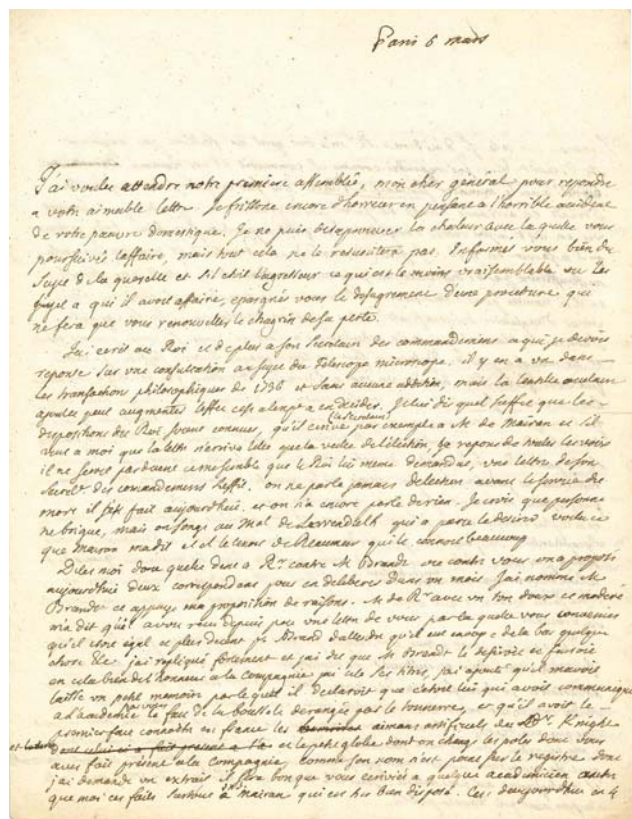 Paris 6 mars
J'ai voulu attendre notre premiere assemblée, mon cher général pour repondre
a votre aimable lettre. Je frissone encore d'horreur en pensant a l'horrible accident
de votre pauvre domestique. Je ne puis desaprouver la chaleur avec la quelle vous
poursuivés l'affaire, mais tout cela ne le resuscitera pas. Informés vous bien du
sujet de la querelle et s'il etoit l'agresseur ce qui est le moins vraisemblable vu les
a qui il avoit affaire, epargnés vous le desagrement d'une procedure qui
ne fera que vous renouveller le chagrin de sa perte.
J'ai ecrit au Roi et de plus a son Secretaire des commandemens a qui je devois
reponse sur une consultation au sujet du Telescope microscope. il y en a un dans
les transactions philosophiques de 1736 et sans aucune addition, mais la lentille oculaire
ajoutée peut augmenter l'effet c'est a en decider. Je lui dis qu'il suffit que les
dispositions du Roi soient connues, qu'il ecrive par exemple a M. de Mairan et s'il
veut a moi que la lettre n'arrive que la veille de l'élection, je repons de toutes les voix
il ne seroit pas decent ce me semble que le Roi lui meme demandat, une lettre de son
Secret. des commandemens suffit. on ne parle jamais d'election avant le service du
mort il fut fait aujourd'hui et on n'a encore parlé de rien. Je crois que personne
ne brigue, mais on songe au Mal. de qui a parce desiré voila ce
que Mairan m'a dit et et de Reaumur qui le connoit beaucoup
Dites moi donc quelle dent a R. contre M. Brandt ou contre vous on a proposé
aujourd'hui deux correspondans pour en deliberer dans un mois. J'ai nommé M.
Brandt et appuyé ma proposition de raisons. M. de R. avec un ton doux et moderé
m'a dit qu'il avoit reçu depuis peu une lettre de vous par la quelle vous conveniés
qu'il etoit egal et plus decent que Brandt qu'il eut envoyé de la bas quelque
chose &c. j'ai repliqué fortement et j'ai dit que M. Brandt le desiroit et faisoit
en cela bien de l'honneur a la compagnie j'ai cité ses titres, j'ai ajouté qu'il m'avoit
laissé un petit memoire par le quel il declaroit que c'etoit lui qui avoit communiqué
a l'academie le fait de la boussole derangée par le tonnerre, et qu'il avoit le
premier fait connoitre en france les aimans artificiels du Dr. Knight
et le petit globe dont on change les poles dont vous
avés fait présent a la compagnie, comme son nom n'est pas sur le registre dont
j'ai demandé un extrait il sera bon que vous ecriviés a quelque academicien autre
que moi ces faits surtout a M. Mairan qui est très bien disposé. C'est d'aujourd'hui en